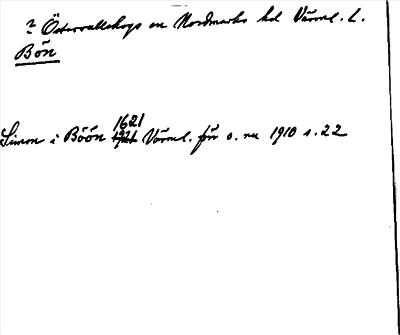 ? Östervallskogs sn Nordmarks hd Värml. l.
Bön
Simon i Böön 1621 Värml. förr o. nu 1910 s. 22